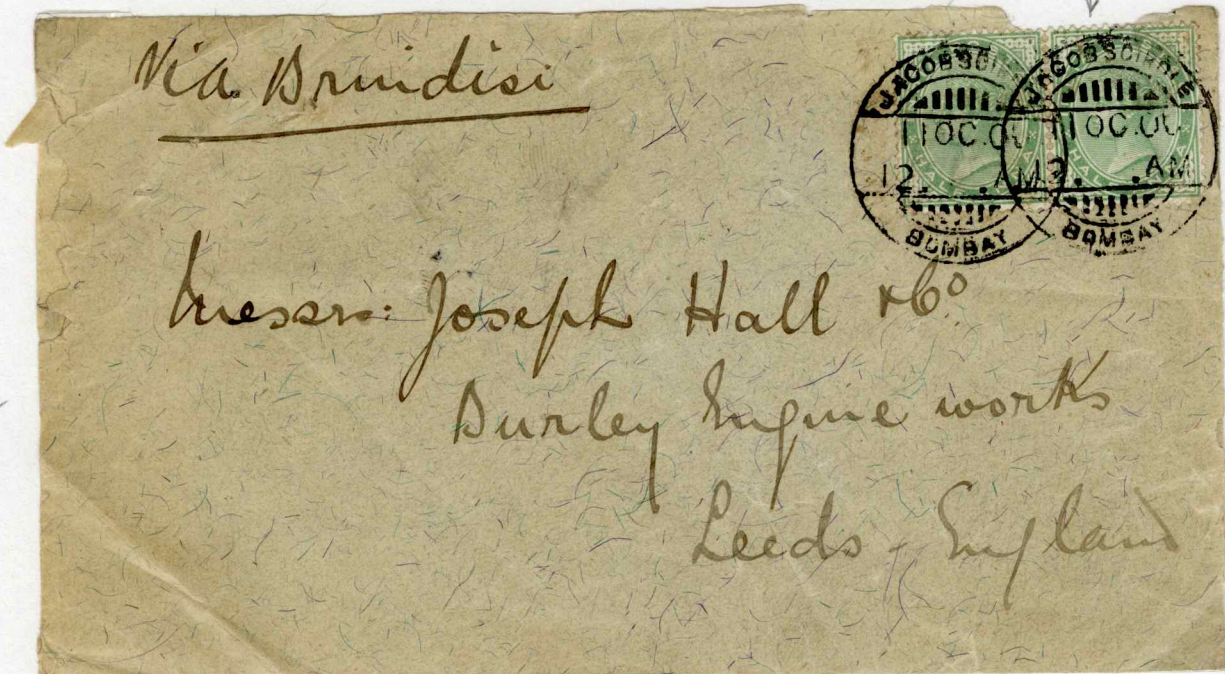 Via Brindisi
JACOBSCIRCLE
11 OC.00
12. .AM
BOMBAY
JACOBSCIRCLE
11 OC.00
12. .AM
BOMBAY
HALF
HALF
Messrs: Joseph Hall & Co
Durley Engine works
Leeds - England